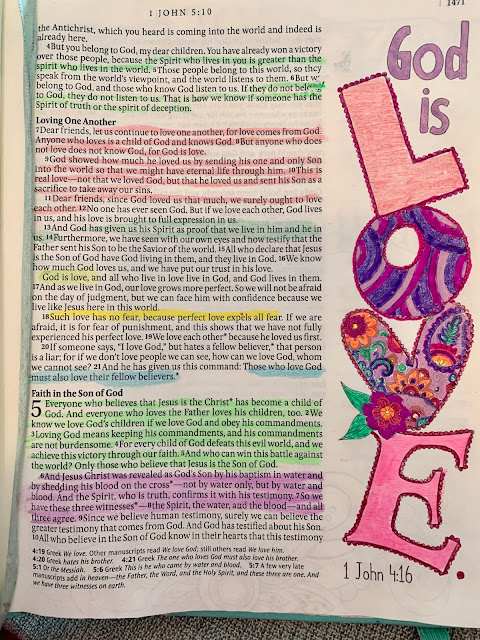 1 JOHN 5:10
1471
the Antichrist, which you heard is coming into the world and indeed is
already here.
4But you belong to God, my dear children. You have already won a victory
over those people, because the Spirit who lives in you is greater than the
spirit who lives in the world. 5Those people belong to this world, so they
speak from the world's viewpoint, and the world listens to them. 6But we
belong to God, and those who know God listen to us. If they do not belong
to God, they do not listen to us. That is how we know if someone has the
Spirit of truth or the spirit of deception.
Loving One Another
7Dear friends, let us continue to love one another, for love comes from God.
Anyone who loves is a child of God and knows God. 8But anyone who
does not love does not know God, for God is love.
9God showed how much he loved us by sending his one and only Son
into the world so that we might have eternal life through him. 10This is
real love—not that we loved God, but that he loved us and sent his Son as a
sacrifice to take away our sins.
11Dear friends, since God loved us that much, we surely ought to love
each other. 12No one has ever seen God. But if we love each other, God lives
in us, and his love is brought to full expression in us.
13And God has given us his Spirit as proof that we live in him and he in
us. 14Furthermore, we have seen with our own eyes and now testify that the
Father sent his Son to be the Savior of the world. 15All who declare that Jesus
is the Son of God have God living in them, and they live in God. 16We know
how much God loves us, and we have put our trust in his love.
God is love, and all who live in love live in God, and God lives in them.
17And as we live in God, our love grows more perfect. So we will not be afraid
on the day of judgment, but we can face him with confidence because we
live like Jesus here in this world.
18Such love has no fear, because perfect love expels all fear. If we are
afraid, it is for fear of punishment, and this shows that we have not fully
experienced his perfect love. 19We love each other* because he loved us first.
20If someone says, "I love God," but hates a fellow believer,* that person
is a liar; for if we don't love people we can see, how can we love God, whom
we cannot see? 21And he has given us this command: Those who love God
must also love their fellow believers.*
Faith in the Son of God
5 Everyone who believes that Jesus is the Christ* has become a child of
God. And everyone who loves the Father loves his children, too. 2We
know we love God's children if we love God and obey his commandments.
3Loving God means keeping his commandments, and his commandments
are not burdensome. 4For every child of God defeats this evil world, and we
achieve this victory through our faith. 5And who can win this battle against
the world? Only those who believe that Jesus is the Son of God.
6And Jesus Christ was revealed as God's Son by his baptism in water and
by shedding his blood on the cross*—not by water only, but by water and
blood. And the Spirit, who is truth, confirms it with his testimony. 7So we
have these three witnesses*—8the Spirit, the water, and the blood—and all
three agree. 9Since we believe human testimony, surely we can believe the
greater testimony that comes from God. And God has testified about his Son.
10All who believe in the Son of God know in their hearts that this testimony
4:19 Greek We love. Other manuscripts read We love God; still others read We love him.
4:20 Greek hates his brother. 4:21 Greek The one who loves God must also love his brother.
5:1 Or the Messiah. 5:6 Greek This is he who came by water and blood. 5:7 A few very late
manuscripts add in heaven—the Father, the Word, and the Holy Spirit, and these three are one. And
we have three witnesses on earth.
God
is
LOVE.
1 John 4:16